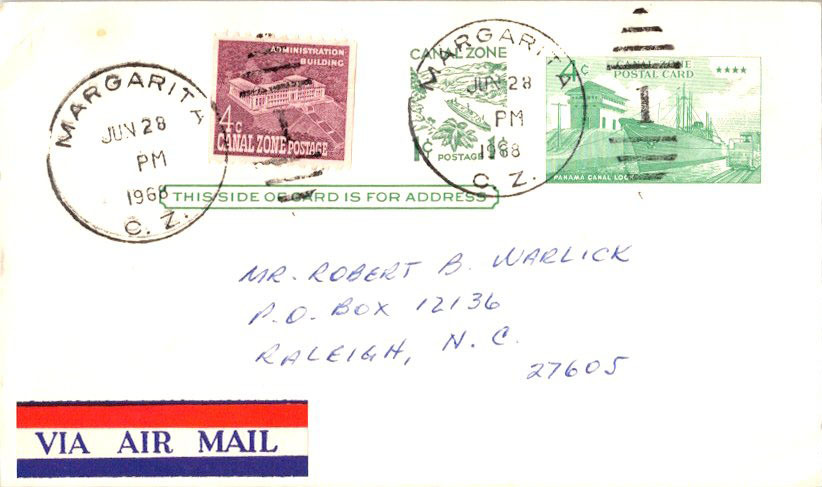 MARGARITA
JUN 28
PM
1968
C. Z.
ADMINISTRATION
BUILDING
4c
CANAL ZONE POSTAGE
CANAL ZONE
1c POSTAGE 1c
MARGARITA
JUN 28
PM
1968
C. Z.
1
4c
CANAL ZONE
POSTAL CARD
PANAMA CANAL LOCK
THIS SIDE OF CARD IS FOR ADDRESS
MR. ROBERT B. WARLICK
P.O. BOX 12136
RALEIGH, N.C.
27605
VIA AIR MAIL